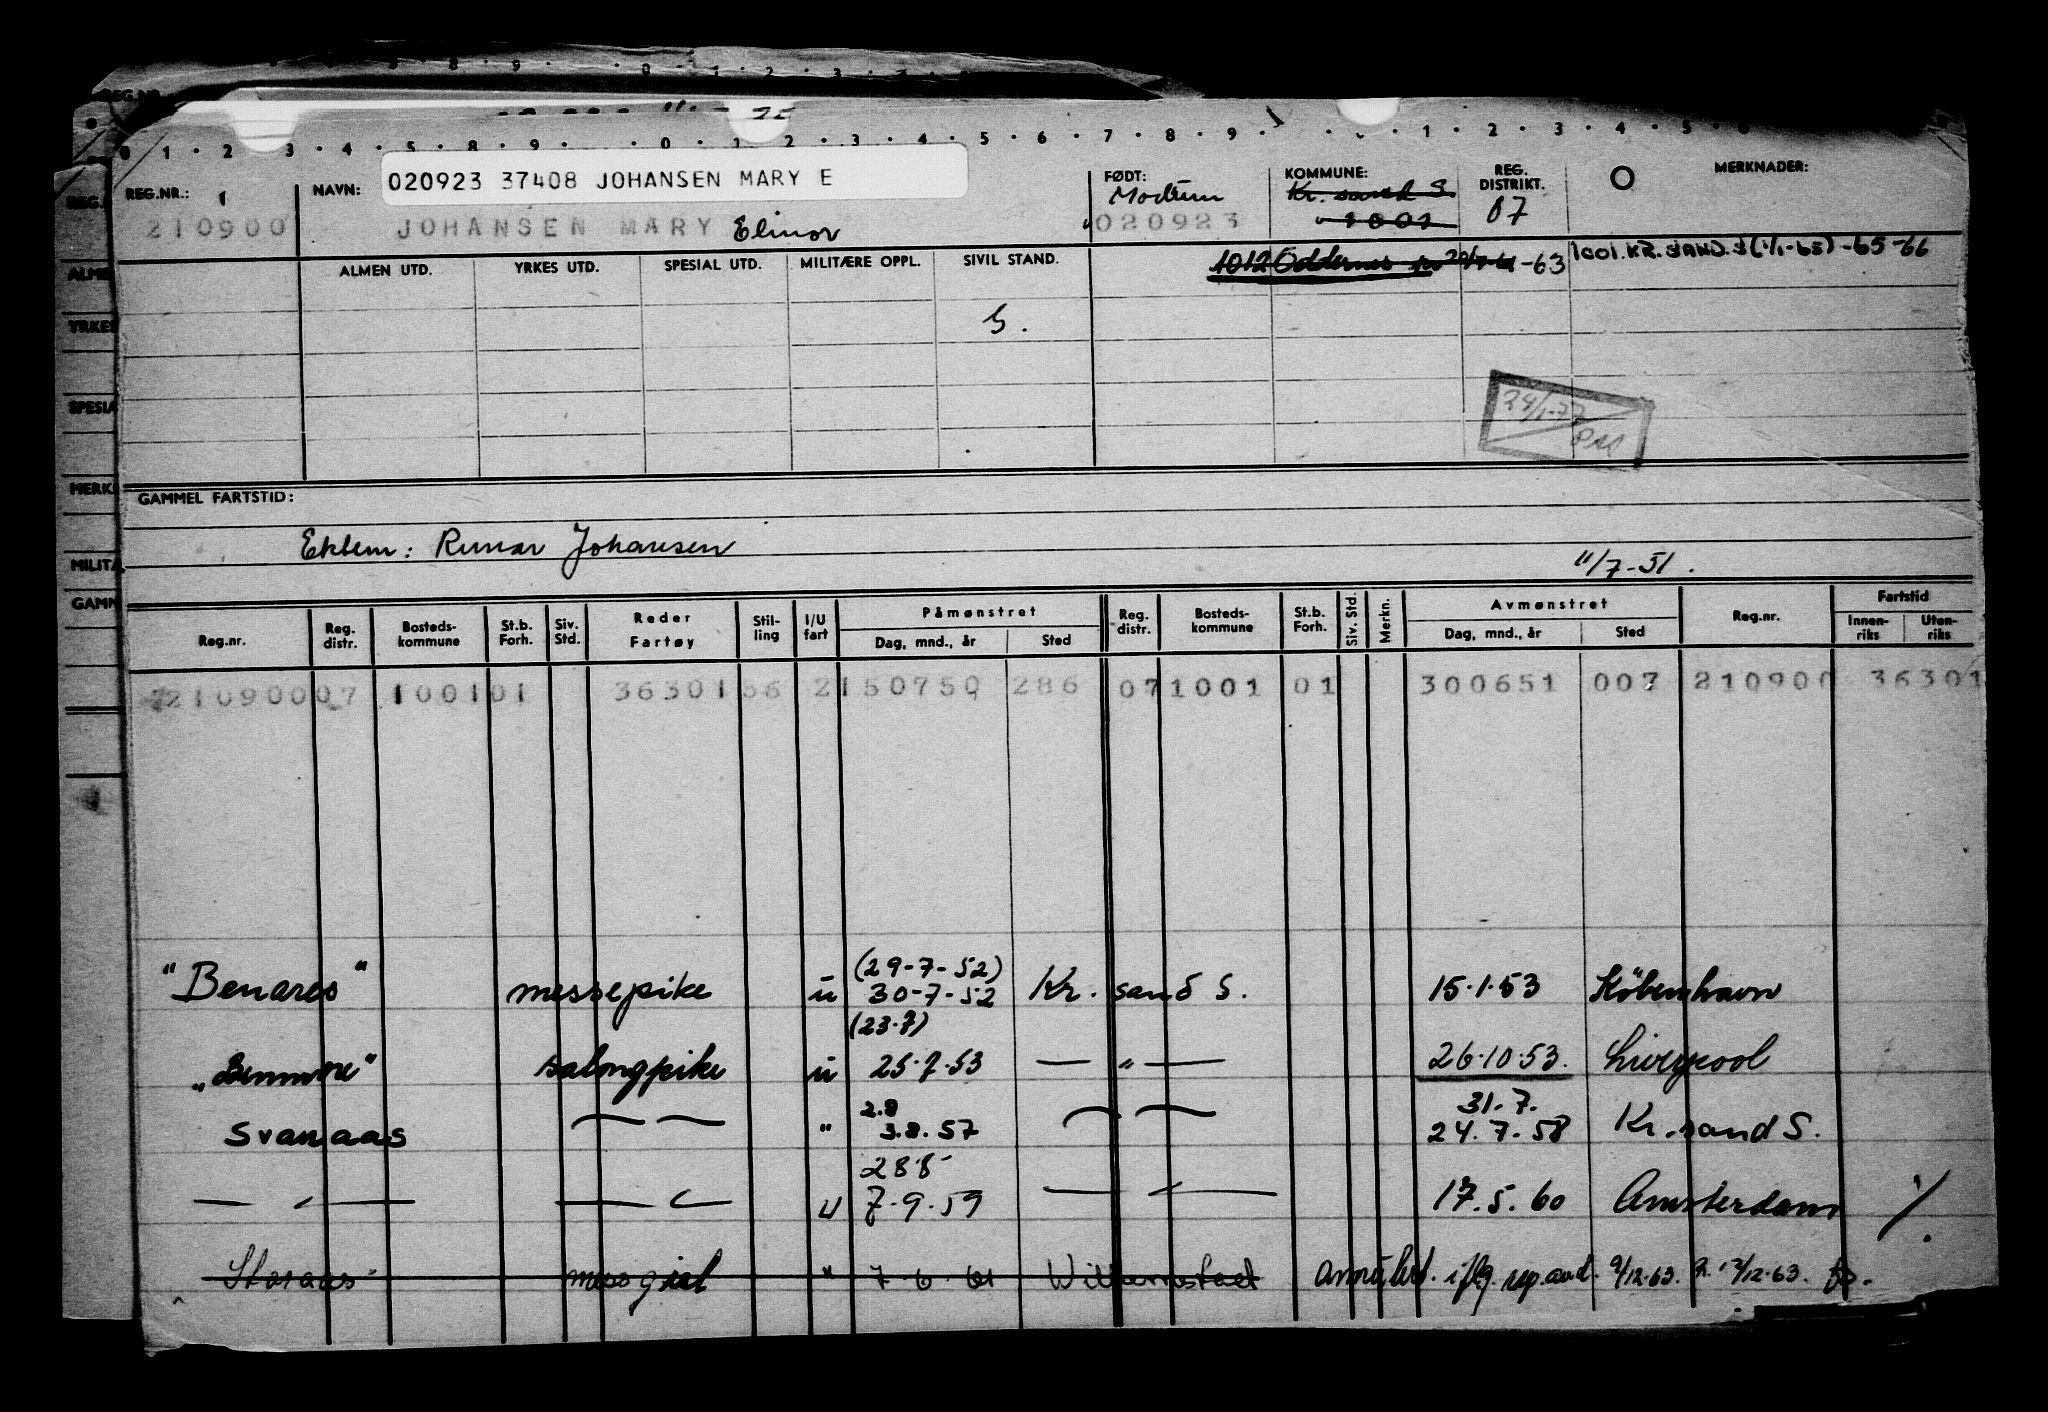 0 1 · 2 · 3 · 4 · 5 · 8 · 9 · 0 · 1 2 · 3 · 4 · 5 · 6 · 7 · 8 · 9 · 1 · 2 · 3 · 4 · 5
REG.NR.: 1 NAVN: 020923 37408 JOHANSEN MARY E FØDT: Modum KOMMUNE: Kr. sand S REG. DISTRIKT. 07 MERKNADER:
210900 JOHANSEN MARY Elinor 020923 1001
ALMEN UTD. YRKES UTD. SPESIAL UTD. MILITÆRE OPPL. SIVIL STAND. 1012 Oddernes -63 1001. KR. SAND. S (1/1-65) -65-66
G.
24/1-77
GAMMEL FARTSTID:
Ektem: Runar Johansen
11/7-51.
Reg.nr. Reg. distr. Bosteds-kommune St.b. Forh. Siv. Std. Reder Fartøy Stil-ling I/U fart Påmønstret Dag, mnd., år Sted Reg. distr. Bosteds-kommune St.b. Forh. Siv. Std. Merkn. Avmønstret Dag, mnd., år Sted Reg.nr. Fartstid Innen-riks Uten-riks
210900 07 1001 01 36301 56 2 150750 286 07 1001 01 300651 007 210900 36301
(29-7-52)
"Benares" messepike u 30-7-52 Kr. sand S. 15.1.53 København
(23.7)
"Benmore" salongpike u 25.7.53 — " — 26.10.53. Liverpool
2.8 31.7.
Svanaas " 3.8.57 24.7.58 Kr. sand S.
28.8
— " — — " — u 7-9-59 — " — 17.5.60 Amsterdam
messgirl " 7-6-61 Willemstad Annullert. iflg. rep. avd. 9/12.63.